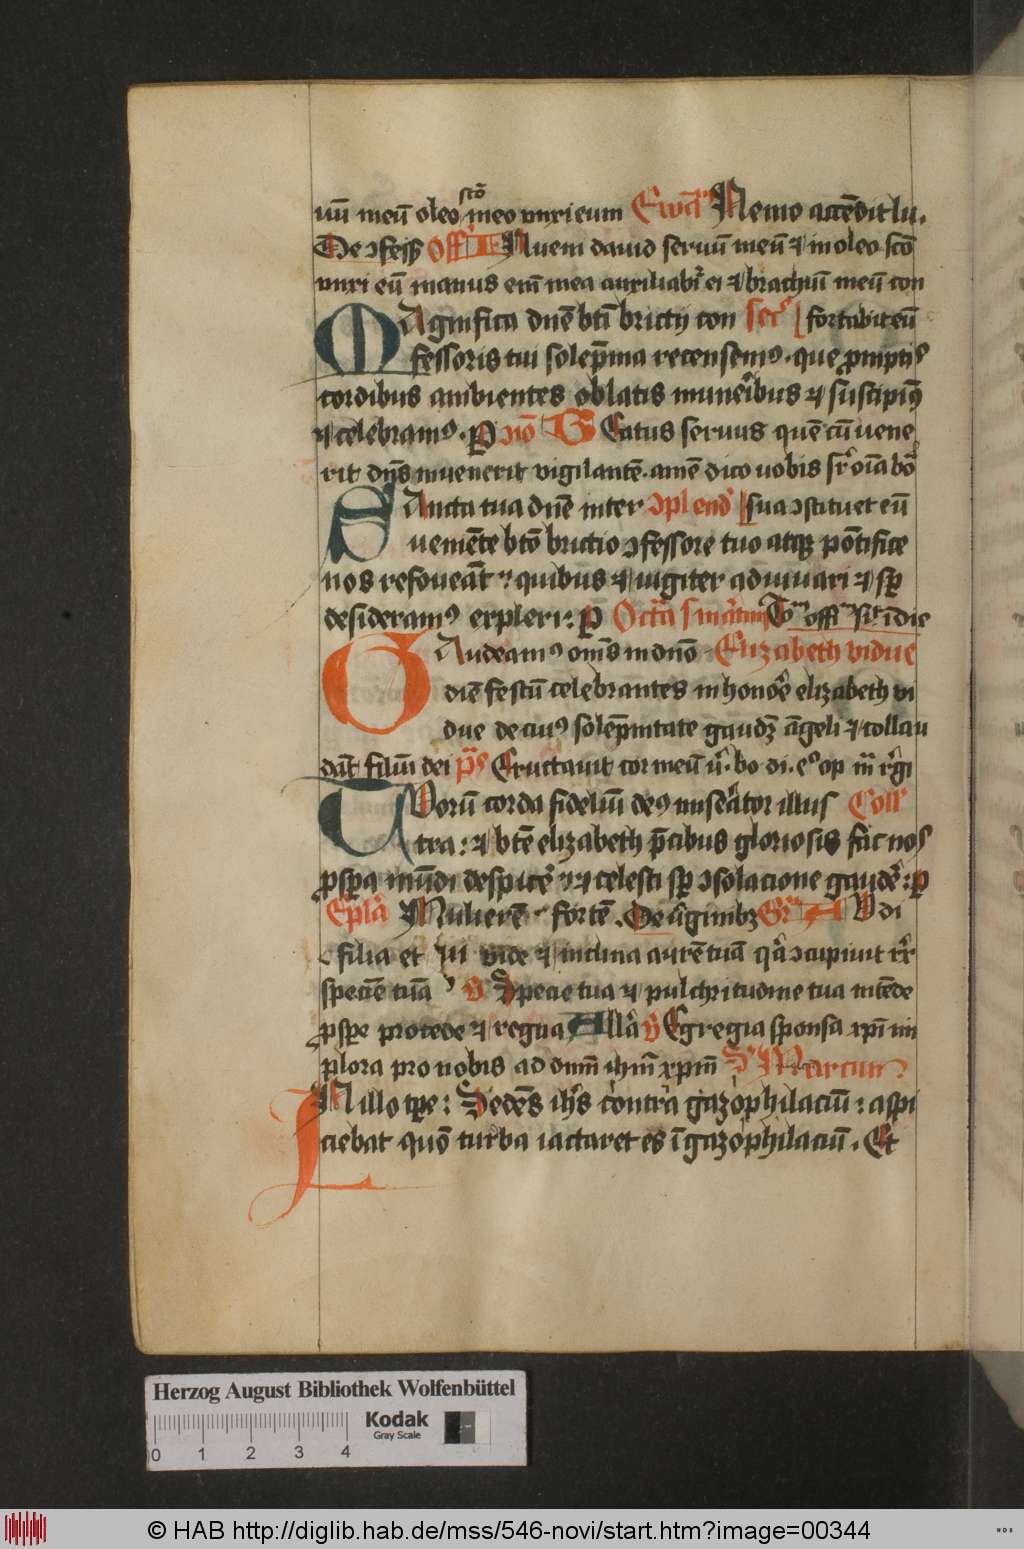 uū meū oleo sctō meo unxi eum Ewāᵐ Nemo accēdit lu.
De ɔfess̄ Offᵐ Inueni dauid seruū meū ⁊ in oleo sctō
unxi eū manus em̄ mea auxiliabr̄ ei ⁊ brachiū meū con
MAgnifica dn̄e bt̄i brictij con Secᵉ fortabit eū
fessoris tui solēpnia recensemꝰ. que prompti
cordibus ambientes oblatis munēibus ⁊ suscipiꝰ
⁊ celebramꝰ. P Cōio BEatus seruus quē cū uene
rit dn̄s inuenerit vigilantē. amē dico uobis sr̄ oīa bō
SAncta tua dn̄e inter ɔplend̄ sua ɔstituet eū
ueniēte btō brictio ɔfessore tuo atqꝫ pōtifice
nos refoueāt: quibus ⁊ iugiter adiuuari ⁊ sp̄
desideramꝰ expleri: P Octā s martini offᵐ in die
GAudeamꝰ om̄s in dn̄o Elizabeth vidue
diē festū celebrantes in honōe elizabeth vi
due de cuiꝰ solēpnitate gaudꝫ āgeli ⁊ collau
dāt filiū dei pˢ Eructauit cor meū ū. bo di. eº op m̄ r̄gi
TUorū corda fidelium deꝰ miseātor illus Coll
tra: ⁊ btē elizabeth p̄cibus gloriosis fac nos
ꝓspa mūdi despicē: ⁊ celesti sp̄ ɔsolacione gaudē: P
Eplā Mulierē fortē. De v̄ginibꝫ Grᵃ AUdi
filia et vide ⁊ inclina aurē tuā qā ɔcupiuit rx̄
speciē tuā V Specie tua ⁊ pulchritudine tua intēde
ꝓspe procede ⁊ regna Allā V Egregia sponsa xp̄i im
plora pro nobis ad dnm̄ ihm̄ xpm̄ Sᵐ Marcum
IN illo tpe: Sedēs ih̄s contra gazophilaciū: aspi
ciebat quō turba iactaret es ī gazophilaciū. Et
Herzog August Bibliothek Wolfenbüttel
Kodak
Gray Scale
0 1 2 3 4
© HAB http://diglib.hab.de/mss/546-novi/start.htm?image=00344